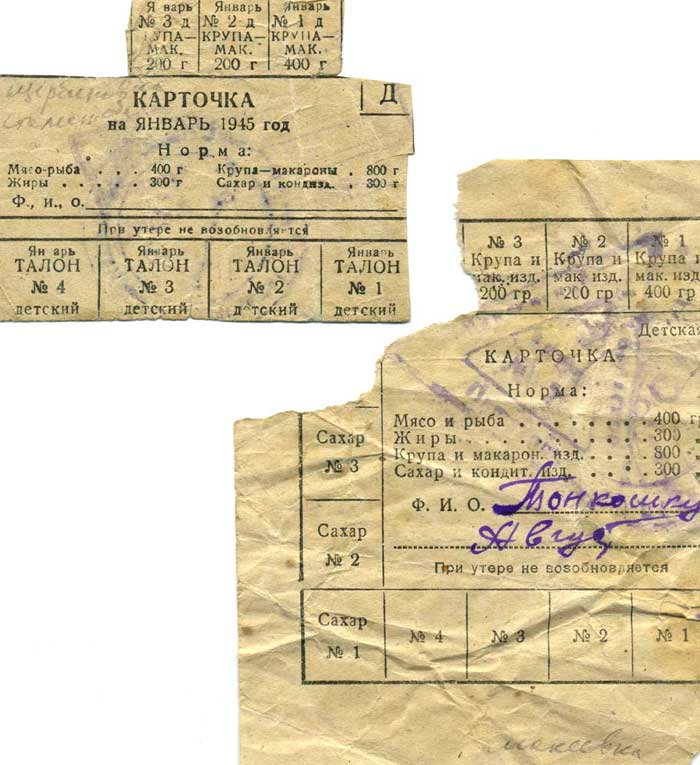 Январь Январь Январь
№ 3 д № 2 д № 1 д
КРУПА— КРУПА— КРУПА—
МАК. МАК. МАК.
200 г 200 г 400 г
КАРТОЧКА Д
на ЯНВАРЬ 1945 год
Норма:
Мясо-рыба . . . 400 г Крупа—макароны . 800 г
Жиры . . . . . 300 г Сахар и кондизд. . 300 г
Ф., и., о.
При утере не возобновляется
Январь Январь Январь Январь
ТАЛОН ТАЛОН ТАЛОН ТАЛОН
№ 4 № 3 № 2 № 1
детский детский детский детский
№ 3 № 2 № 1
Крупа и Крупа и Крупа и
мак. изд. мак. изд. мак. изд.
200 гр 200 гр 400 гр
Детская
КАРТОЧКА
Норма:
Мясо и рыба . . . . . . . . 400 гр
Жиры . . . . . . . . . . 300 „
Крупа и макарон. изд. . . . . 800 „
Сахар и кондит. изд. . . . . . 300 „
Ф. И. О. Тонкошку
Август
При утере не возобновляется
Сахар
№ 3
Сахар
№ 2
Сахар
№ 1
№ 4 № 3 № 2 № 1
макеевка